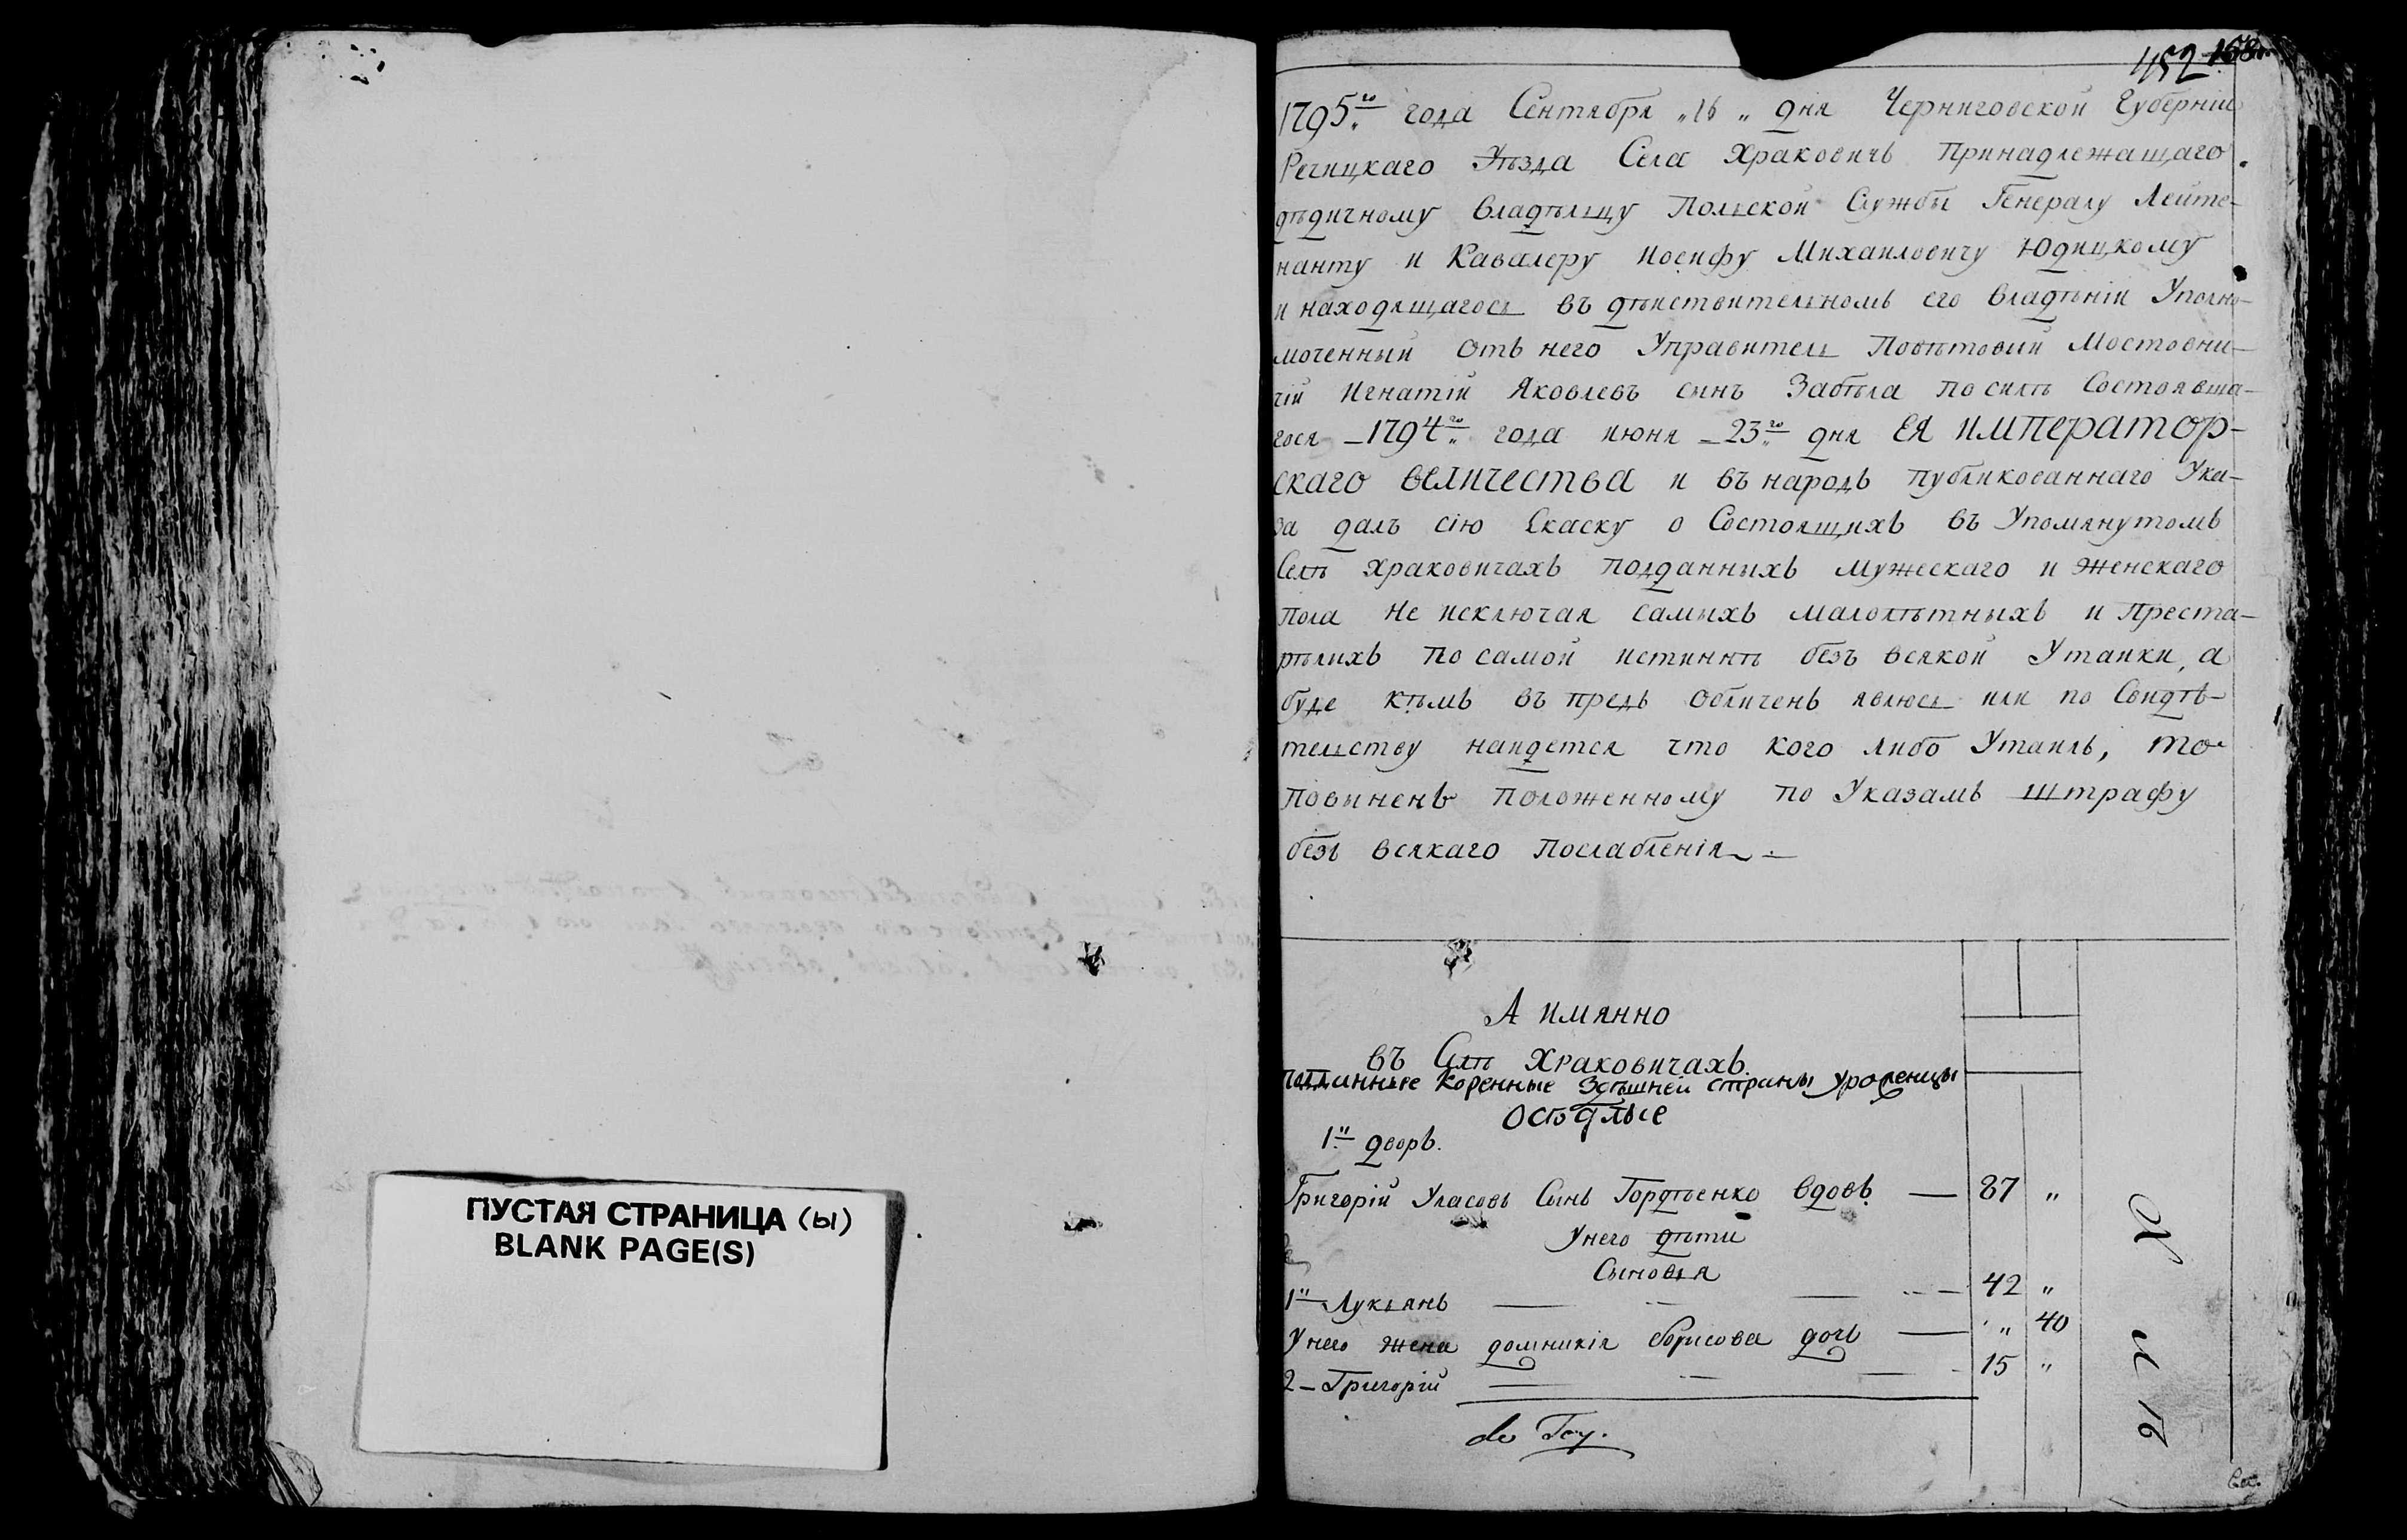 ПУСТАЯ СТРАНИЦА (ы)
BLANK PAGE(S)
452 168
1795го года Сентября „16„ дня Черниговской Губерніи
Речицкаго Уѣзда Села Храковичъ Принадлежащаго
дѣдичному владѣльцу Польской Службы Генералу Лейте-
нанту и Кавалеру Иосифу Михаиловичу Юдицкому
и находящагось въ дѣйствительномъ его владѣніи Уполно-
моченный отъ него Управитель Повѣтовий Мостовни-
чій Игнатій Яковлевъ синъ Забѣла по силѣ Состоявша-
гося 1794го года июня 23го дня ЕЯ Император-
скаго величества и въ народъ публикованнаго Ука-
за далъ сію Скаску о Состоящихъ въ Упомянутомъ
Селѣ Храковичахъ подданныхъ мужескаго и женскаго
пола не исключая самыхъ малолѣтныхъ и Преста-
рѣлихъ по самой истиннѣ безъ всякой Утайки, а
буде кѣмъ въ предь обличенъ явлюсь или по Свидѣ-
тельству найдется что кого либо Утаилъ, то
повиненъ положенному по Указамъ штрафу
безъ всякаго послабленія
А имянно
въ Селѣ Храковичахъ
подданные коренные здѣшней страны уроженцы
осѣдлые
1й дворъ.
Григорій Уласовъ Сынъ Гордѣенко вдовъ — 87 „
Унего дѣти
Сыновья
1й Лукьянъ — 42 „
Унего жена домникія борисова дочь — „ 40
2 - Григорій — 15 „